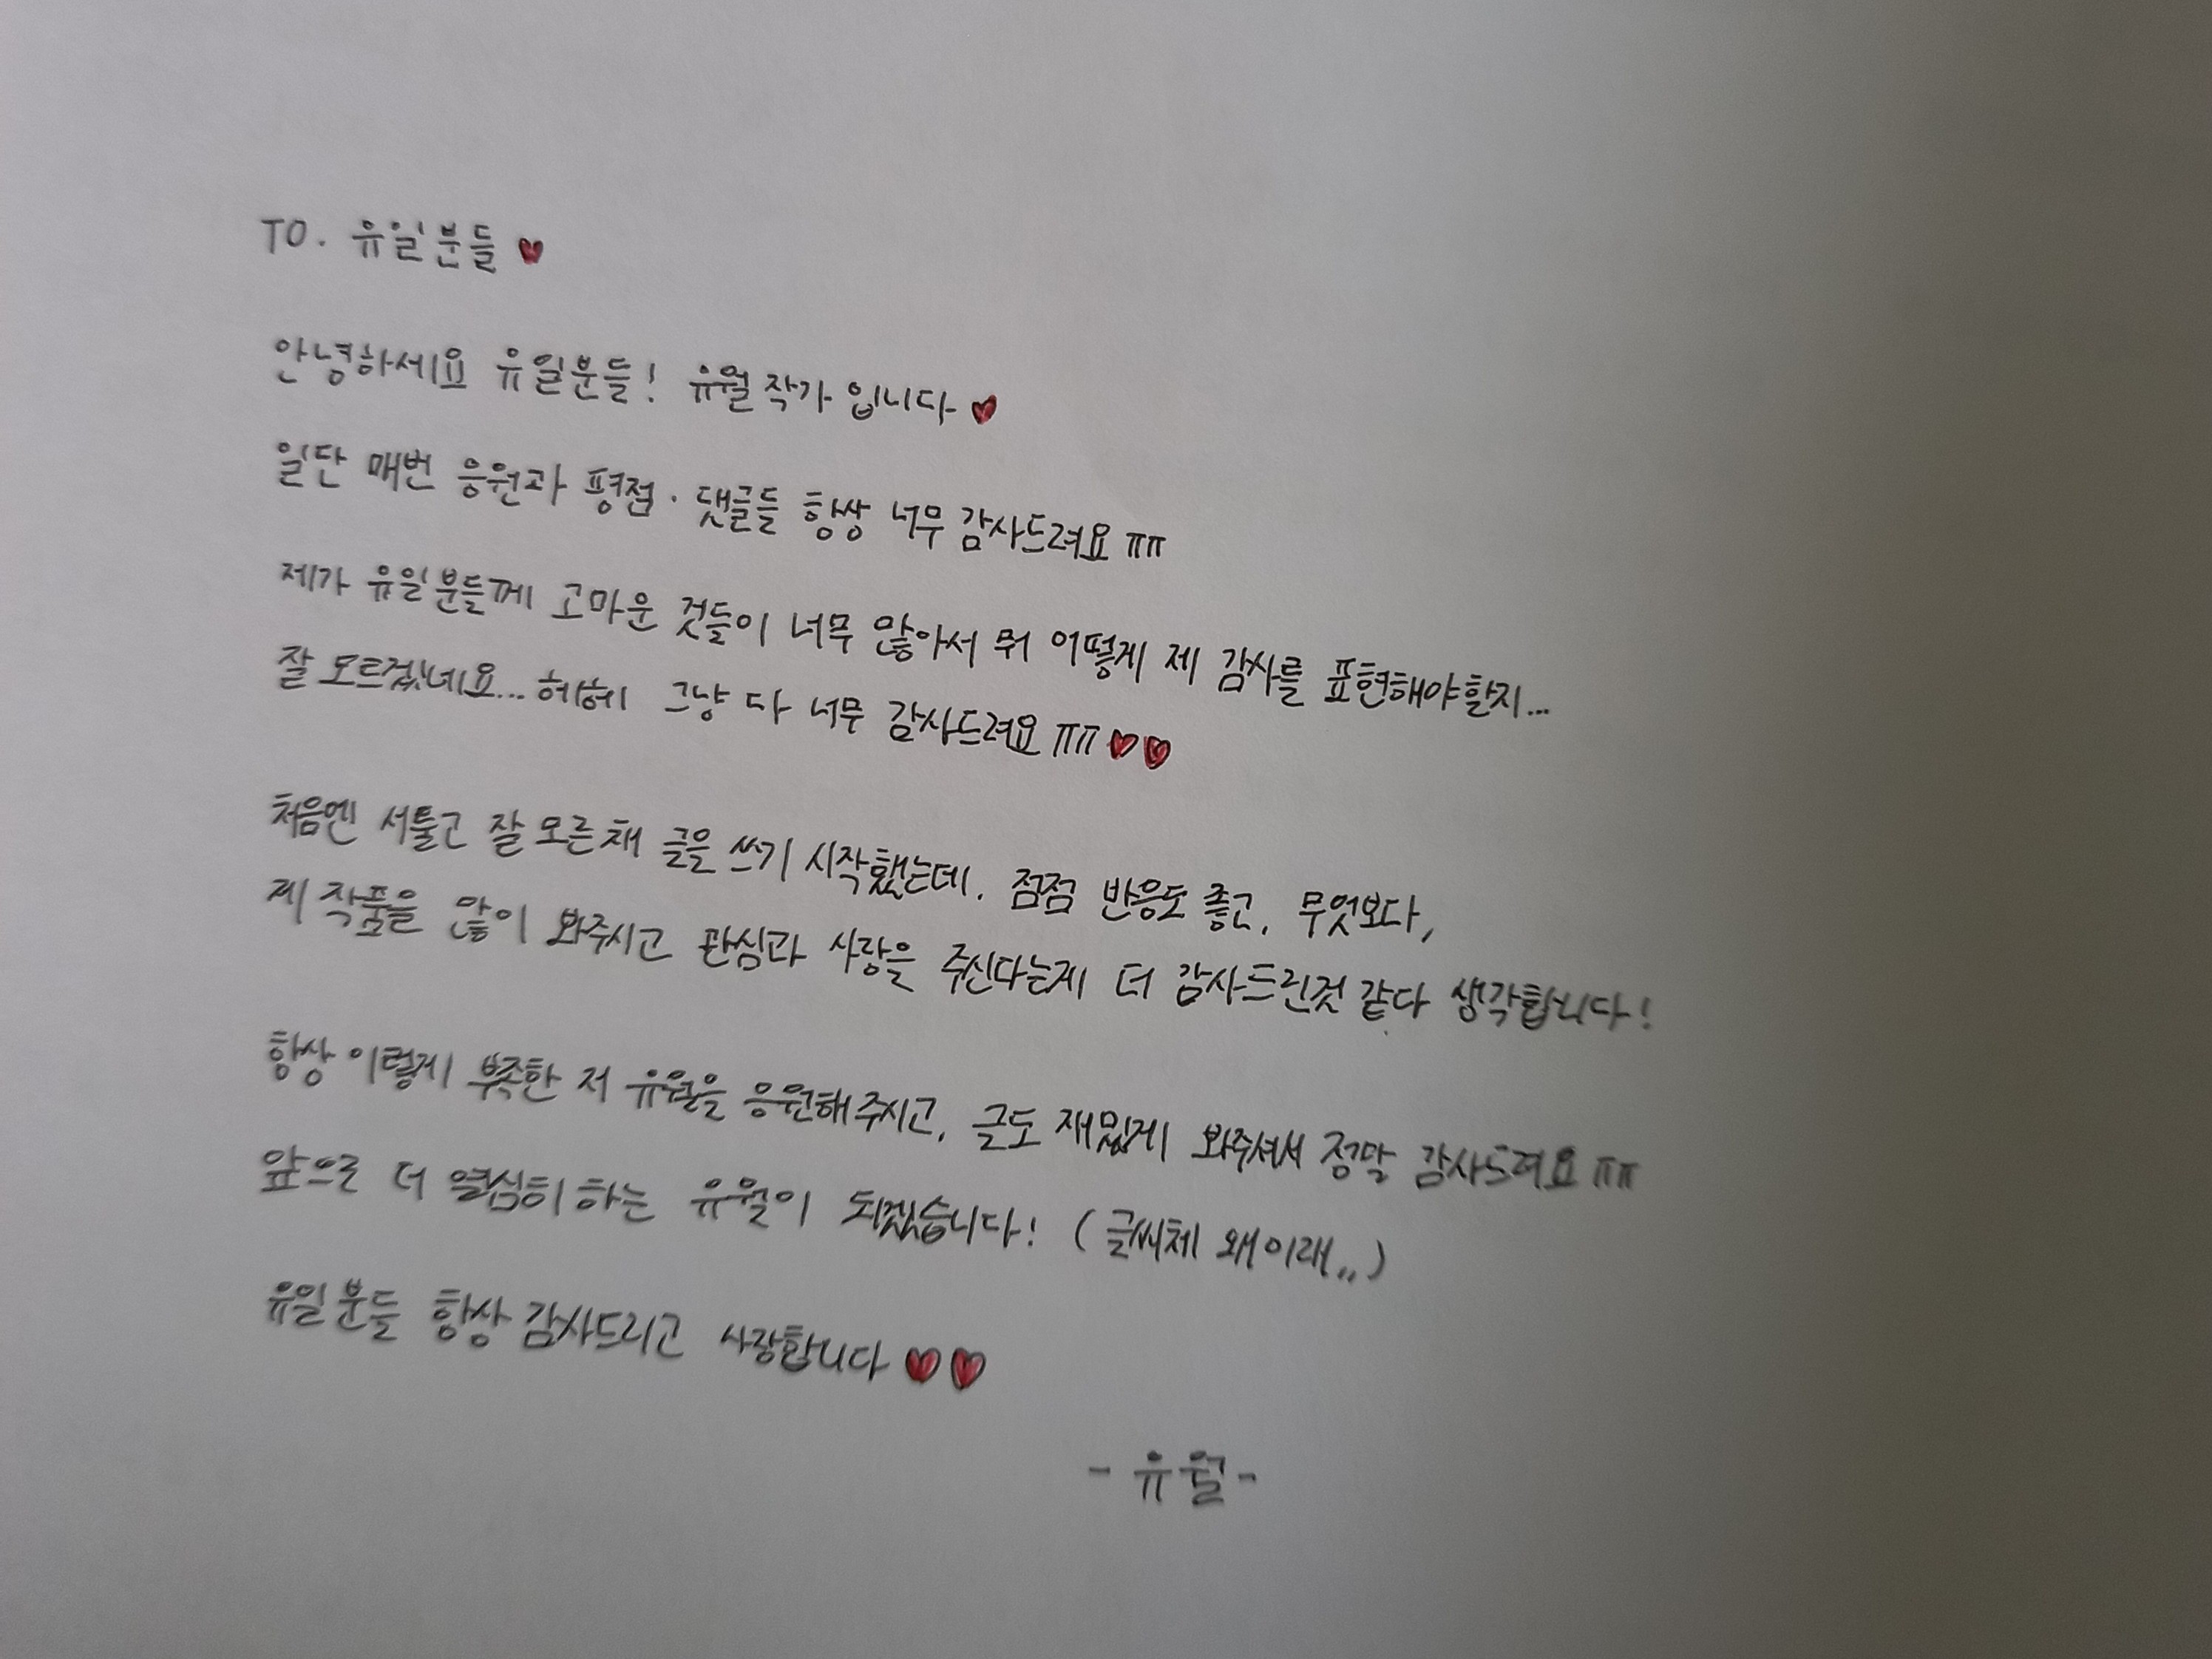 TO. 유일분들 ♥
안녕하세요 유일분들! 유월 작가 입니다 ♥
일단 매번 응원과 평점 · 댓글들 항상 너무 감사드려요 ㅠㅠ
제가 유일분들께 고마운 것들이 너무 많아서 뭐 어떻게 제 감사를 표현해야할지...
잘 모르겠네요... 헤헤 그냥 다 너무 감사드려요 ㅠㅠ ♥♥
처음엔 서툴고 잘 모른채 글을 쓰기 시작했는데, 점점 반응도 좋고, 무엇보다,
제 작품을 많이 봐주시고 관심과 사랑을 주신다는게 더 감사드린것 같다 생각합니다!
항상 이렇게 부족한 저 유월을 응원해주시고, 글도 재밌게 봐주셔서 정말 감사드려요 ㅠㅠ
앞으로 더 열심히 하는 유월이 되겠습니다! (글씨체 왜이래,,)
유일분들 항상 감사드리고 사랑합니다 ♥♥
- 유월 -